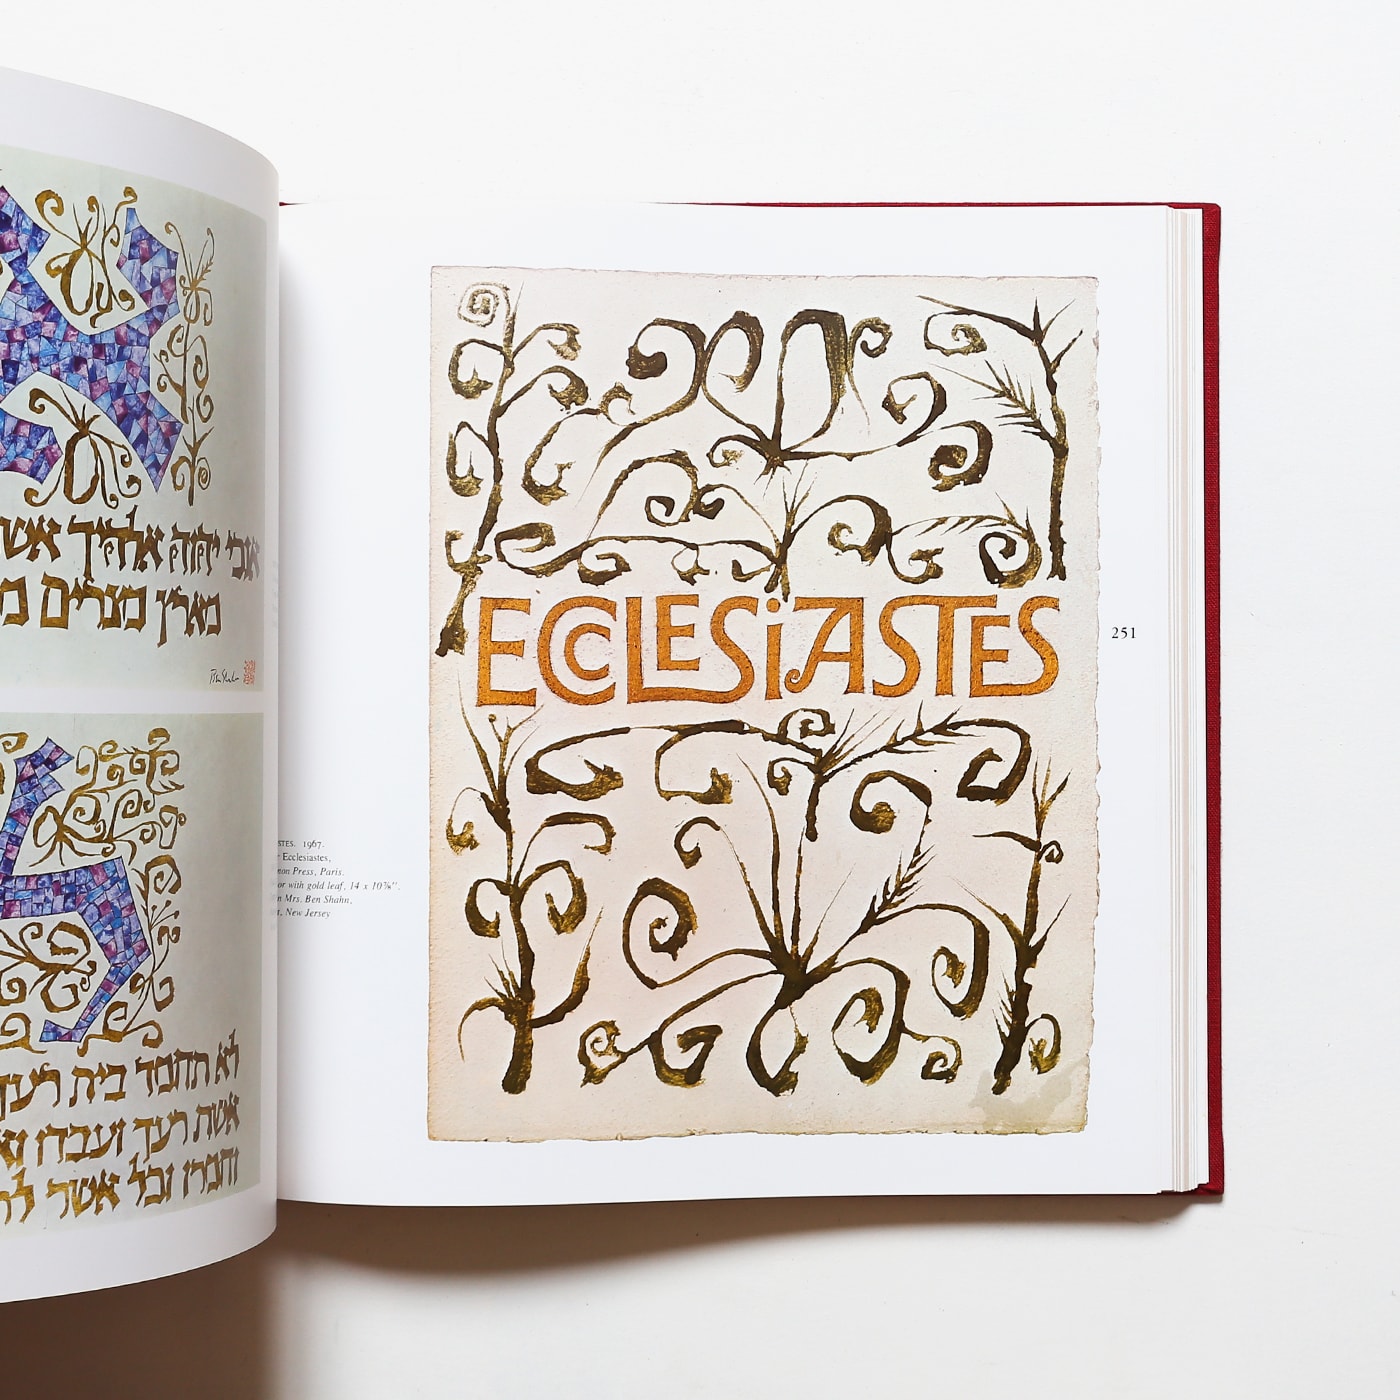 אנכי יהוה אלהיך אשר
מארץ מצרים מ
Ben Shahn
לא תחמד בית רעך
אשת רעך ועבדו וא
וחמרו וכל אשר לר
STES. 1967.
Ecclesiastes,
non Press, Paris.
or with gold leaf, 14 x 10⅞”.
n Mrs. Ben Shahn,
New Jersey
ECCLESiASTES
251